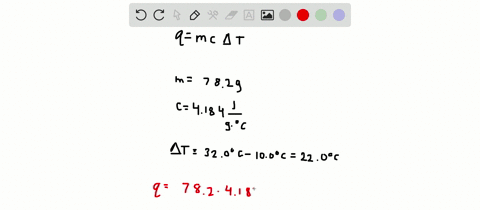 q = m c Δ T
m = 78.2 g
c = 4.184 J
g·°C
ΔT = 32.0°C - 10.0°C = 22.0°C
q = 78.2 · 4.18